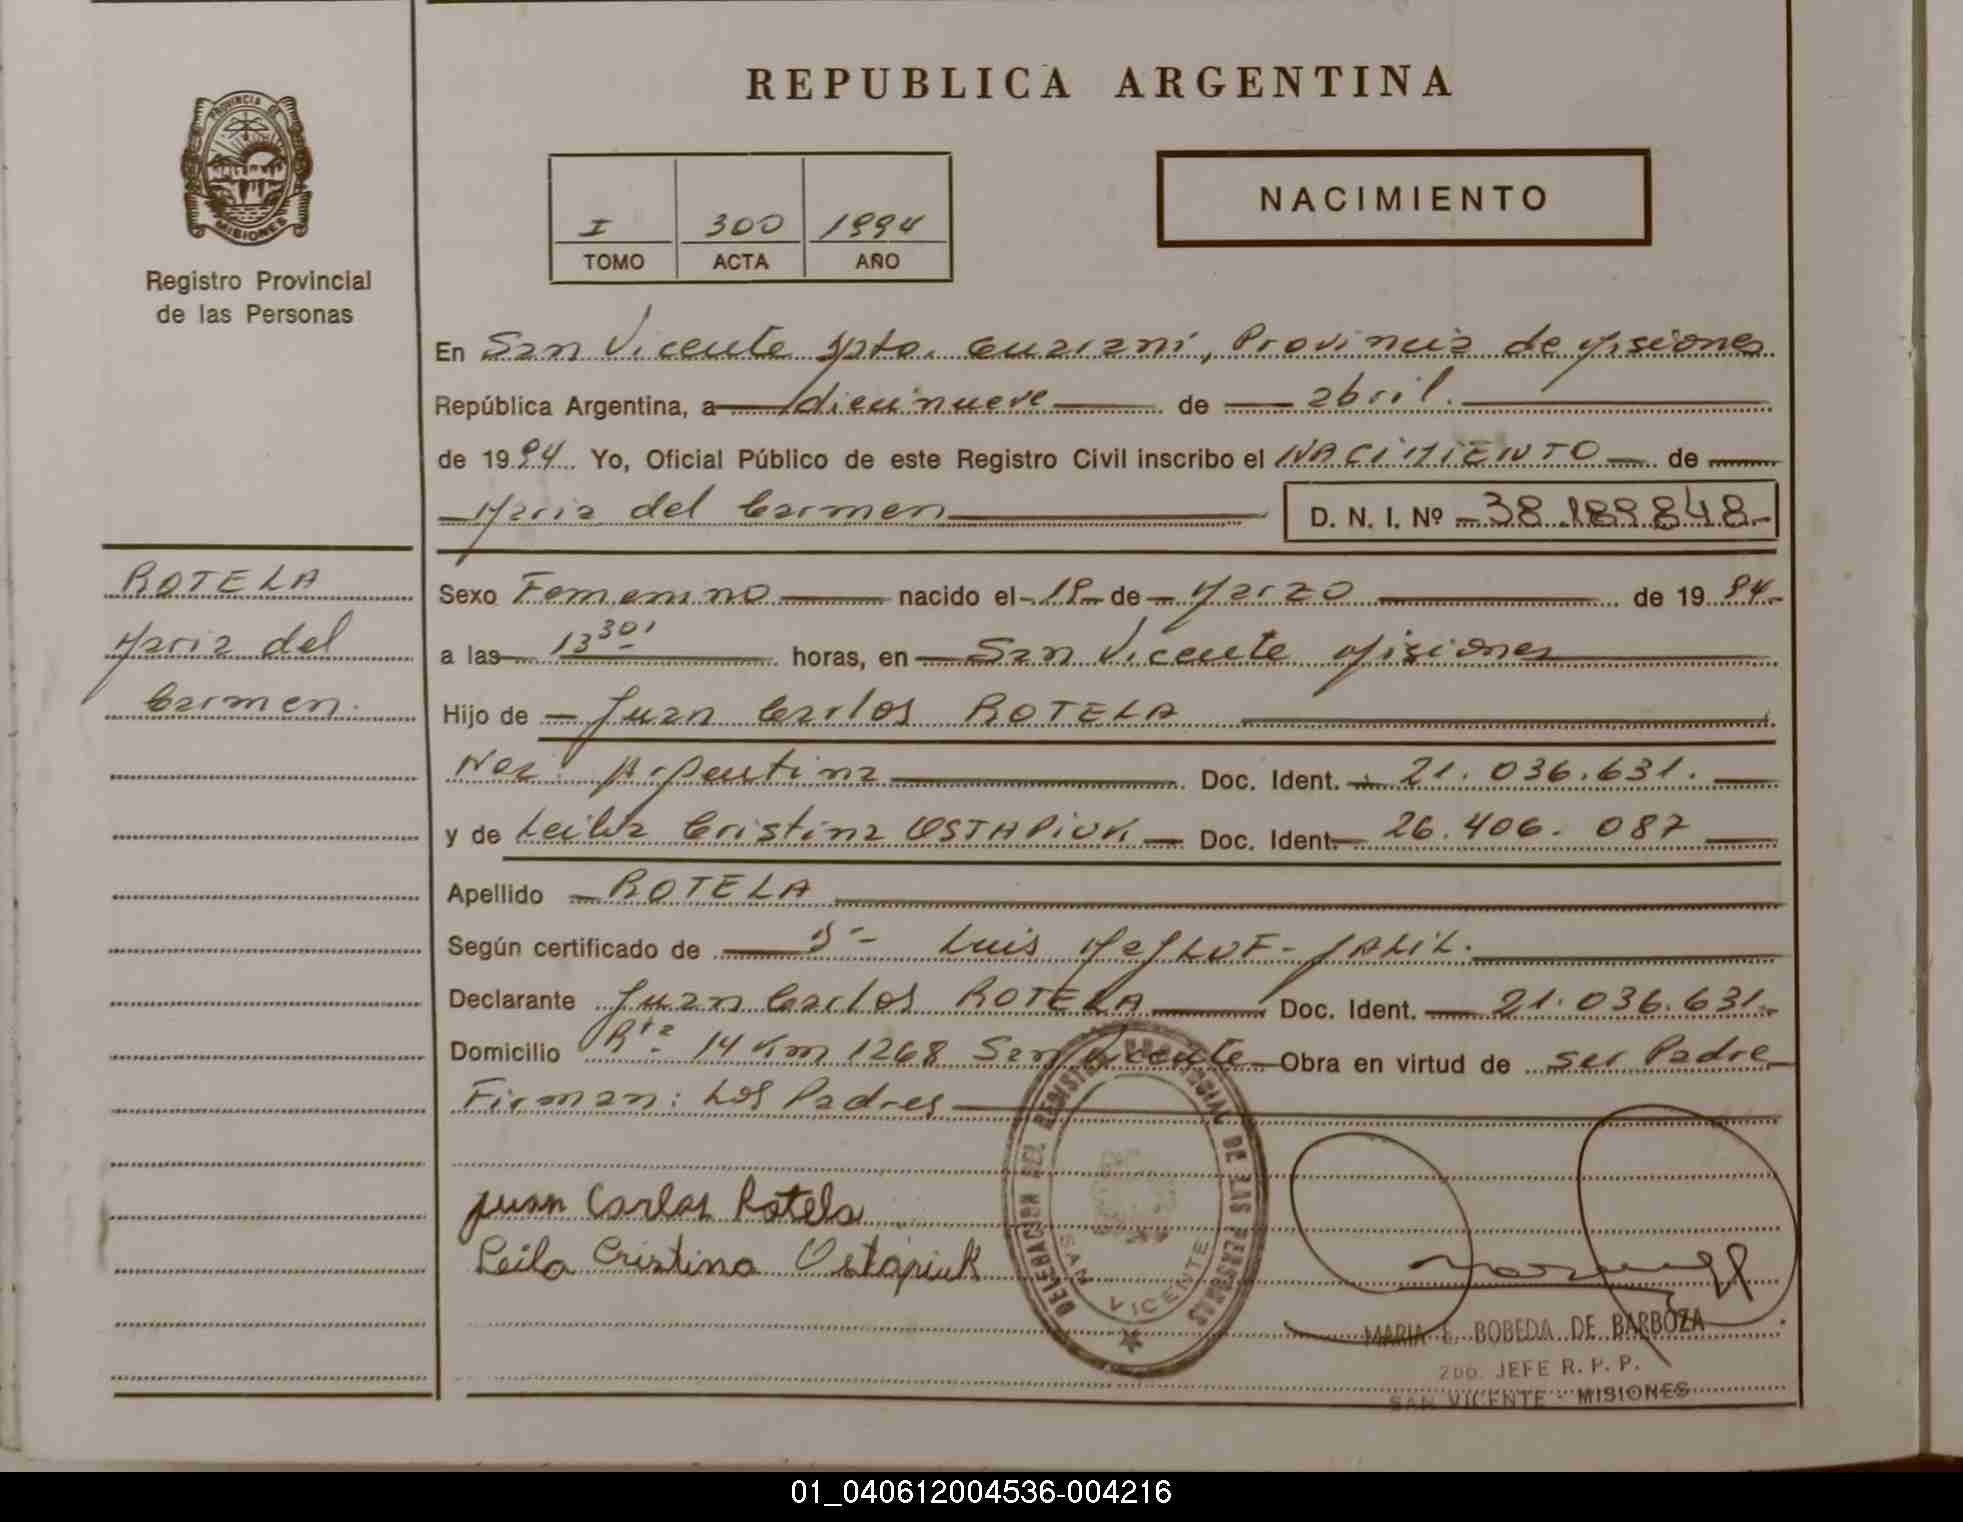 REPUBLICA ARGENTINA
PROVINCIA DE
MISIONES
Registro Provincial
de las Personas
NACIMIENTO
I 300 1994
TOMO ACTA AÑO
En San Vicente Dpto. Guarani, Provincia de Misiones
República Argentina, a diecinueve de abril.
de 1994. Yo, Oficial Público de este Registro Civil inscribo el NACIMIENTO de
Maria del Carmen D. N. I. Nº 38.189.848-
ROTELA
Maria del
Carmen.
Sexo Femenino nacido el 19 de Marzo de 1994-
a las 13 30' horas, en San Vicente Misiones
Hijo de Juan Carlos ROTELA
Nac: Argentina Doc. Ident. 21.036.631.
y de Leila Cristina OSTAPiUK Doc. Ident. 26.406.087
Apellido ROTELA
Según certificado de Luis JALiL.
Declarante Juan Carlos ROTELA Doc. Ident. 21.036.631-
Domicilio Rta 14 Km 1268 San Vicente Obra en virtud de ser Padre
Firman: Los Padres
Juan Carlos Rotela
Leila Cristina Ostapiuk
DELEGACION DEL REGISTRO PROVINCIAL DE LAS PERSONAS
SAN VICENTE
MARIA E. BOBEDA DE BARBOZA
2DO. JEFE R. P. P.
SAN VICENTE - MISIONES
01_040612004536-004216